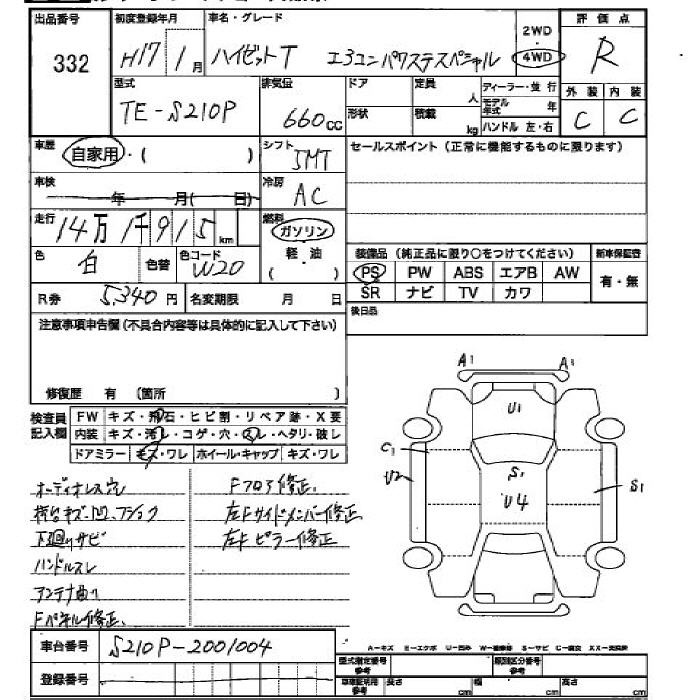 出品番号 初度登録年月 車名・グレード 評価点
332 H17 1月 ハイゼットT エアコンパワステスペシャル 2WD 4WD R
型式 排気量 ドア 定員 人 ディーラー・並行 外装 内装
TE-S210P 660cc 形状 積載 kg モデル年式 年 ハンドル 左・右 C C
車歴 自家用・( ) シフト 5MT セールスポイント (正常に機能するものに限ります)
車検 年 月( 日) 冷房 AC
走行 14万1千915km 燃料 ガソリン
色 白 色替 色コード W20 軽油 ( ) 装備品 (純正品に限り○をつけてください) 新車保証書
PS PW ABS エアB AW 有・無
R券 5,340円 名変期限 月 日 SR ナビ TV カワ
注意事項申告欄 (不具合内容等は具体的に記入して下さい) 後日品
修復歴 有 (箇所 )
検査員記入欄 FW キズ・飛石・ヒビ割・リペア跡・X要
内装 キズ・汚レ・コゲ・穴・スレ・ヘタリ・破レ
ドアミラー キズ・ワレ ホイール・キャップ キズ・ワレ
A1 A1
U1
C1
U2 S1 S1
U4
オーディオレス穴 Fフロア修正.
荷台キズ・凹. フショク 左Fサイドメンバー修正
下廻りサビ 左Fピラー修正
ハンドルスレ
アンテナ曲り
Fパネル修正.
車台番号 S210P-2001004
A-キズ E-エクボ U-凹み W-補修跡 S-サビ C-腐食 XX-交換済
登録番号 型式指定番号 参考 類別区分番号 参考
車庫証明用 参考 長さ cm 幅 cm 高さ cm